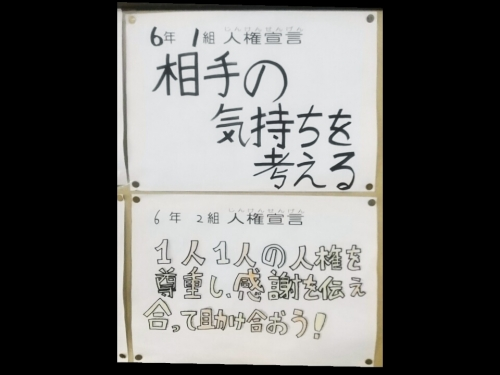 6年 1組 人権宣言
相手の
気持ちを
考える
6年 2組 人権宣言
1人1人の人権を
尊重し、感謝を伝え
合って助け合おう!